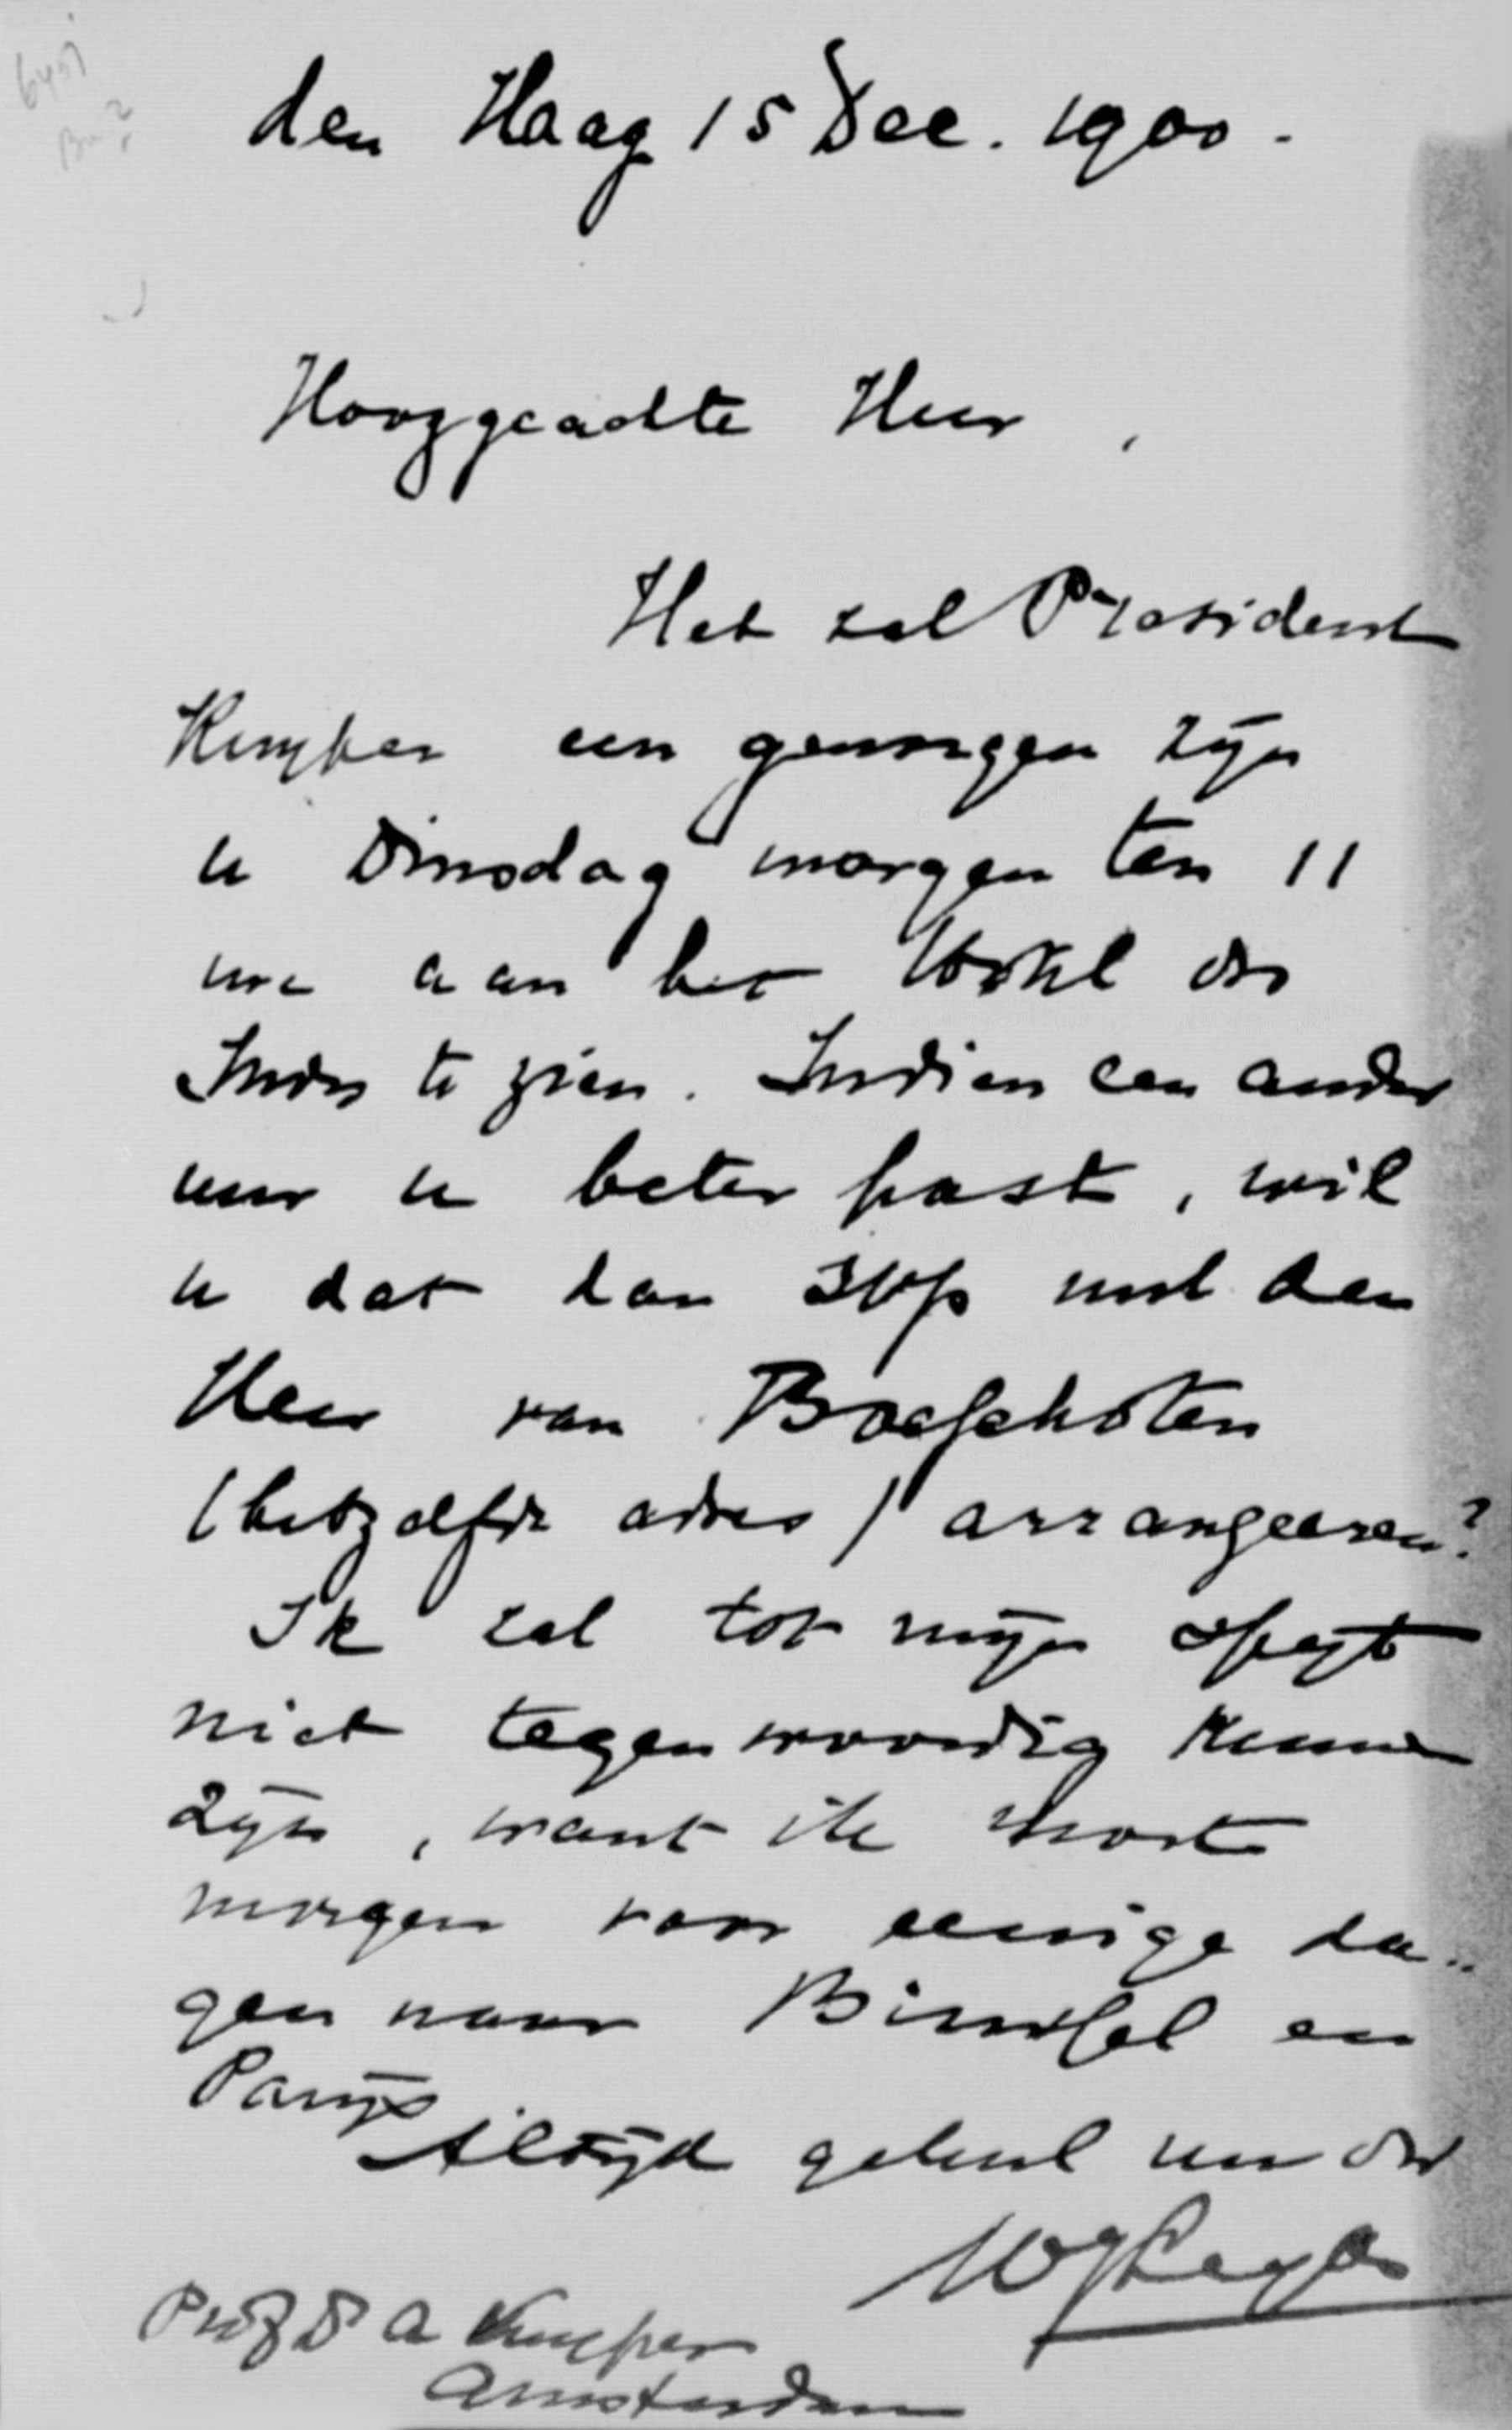 den Haag 15 Dec. 1900.
Hooggeachte Heer,
Het zal President
Kruger een genoegen zijn
u Dinsdag morgen ten 11
ure aan het Hotel des
Indes te zien. Indien een ander
uur u beter past, wil
u dat dan svp met den
Heer van Boeschoten
(hetzelfde adres) arrangeeren?
Ik zal tot mijn spyt
niet tegenwoordig kunnen
zijn, want ik moet
morgen voor eenige da-
gen naar Brussel en
Parijs
Altijd geheel uw dr
WJLeyds
Prof Dr A Kuyper
Amsterdam